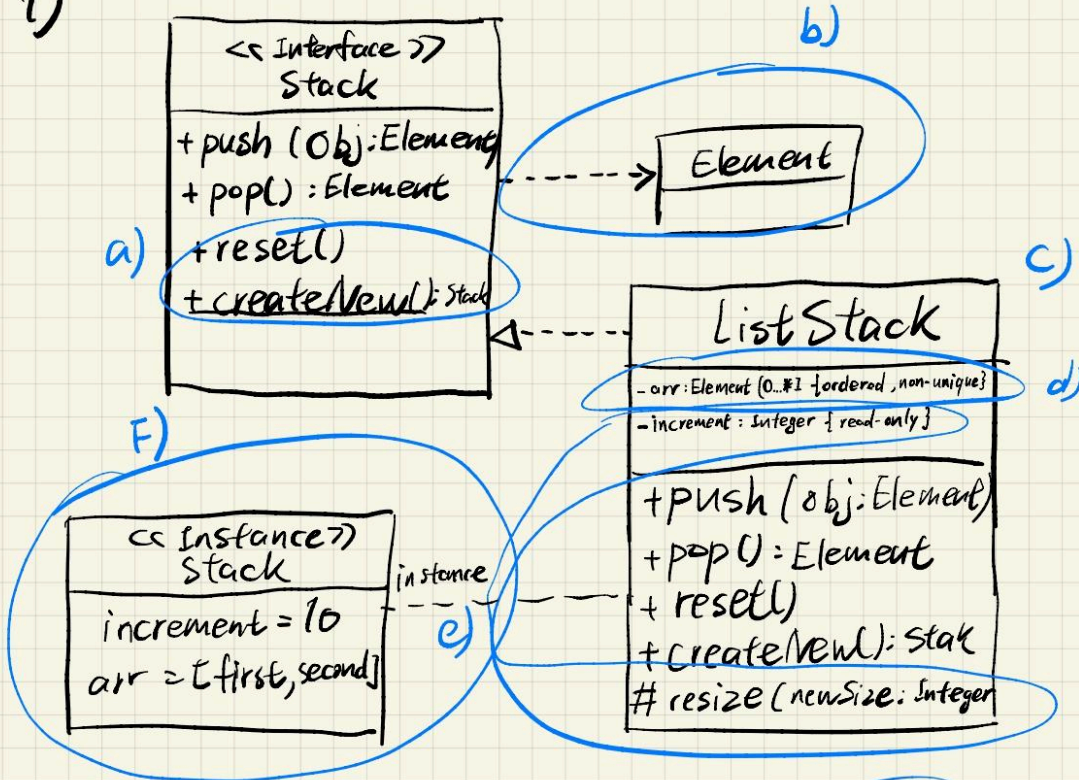 1)
<< Interface >>
Stack
+ push (Obj:Element)
+ pop() : Element
+ reset()
+ createNew(): Stack
a)
b)
Element
c)
ListStack
- arr: Element [0...*] {ordered, non-unique}
d)
- increment : Integer { read-only }
+ push (obj: Element)
+ pop() : Element
+ reset()
+ createNew(): Stak
# resize (newSize: Integer
e)
F)
<< Instance >>
Stack
increment = 10
arr = [first, second]
instance